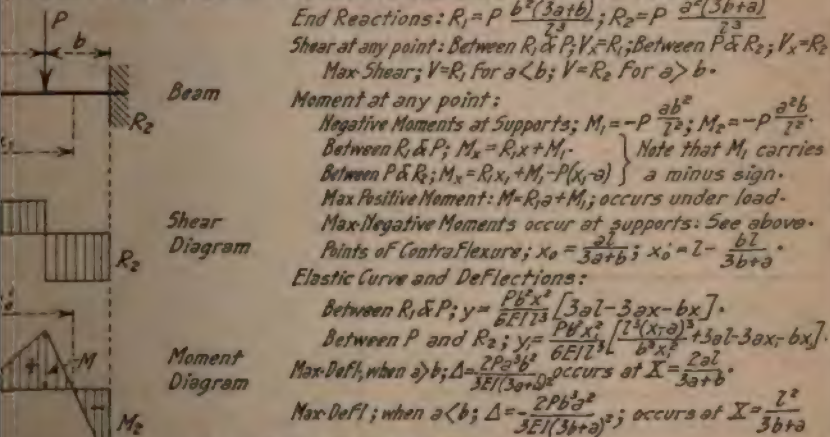 P
b
Beam
R₂
Shear
Diagram
R₂
M
Moment
Diagram
M₂
End Reactions: R₁=P b²(3a+b)/l³; R₂=P a²(3b+a)/l³
Shear at any point: Between R₁ & P; Vₓ=R₁; Between P & R₂; Vₓ=R₂
Max-Shear; V=R₁ For a<b; V=R₂ For a>b.
Moment at any point:
Negative Moments at Supports; M₁=-P ab²/l²; M₂=-P a²b/l².
Between R₁ & P; Mₓ=R₁x+M₁.
Between P & R₂; Mₓ=R₁x₁+M₁-P(x₁-a)
} Note that M₁ carries
a minus sign.
Max Positive Moment: M=R₁a+M₁; occurs under load.
Max-Negative Moments occur at supports: See above.
Points of Contraflexure; x₀=al/3a+b; x₀'=l-bl/3b+a.
Elastic Curve and Deflections:
Between R₁ & P; y=Pb²x²/6EIl³[3al-3ax-bx].
Between P and R₂; y₁=Pb²x₁²/6EIl³[l³(x₁-a)³/b²x₁²+3al-3ax₁-bx₁].
Max-Defl, when a>b; Δ=-2Pa³b²/3EI(3a+b)² occurs at X=2al/3a+b.
Max-Defl; when a<b; Δ=-2Pb³a²/3EI(3b+a)²; occurs at X=l²/3b+a